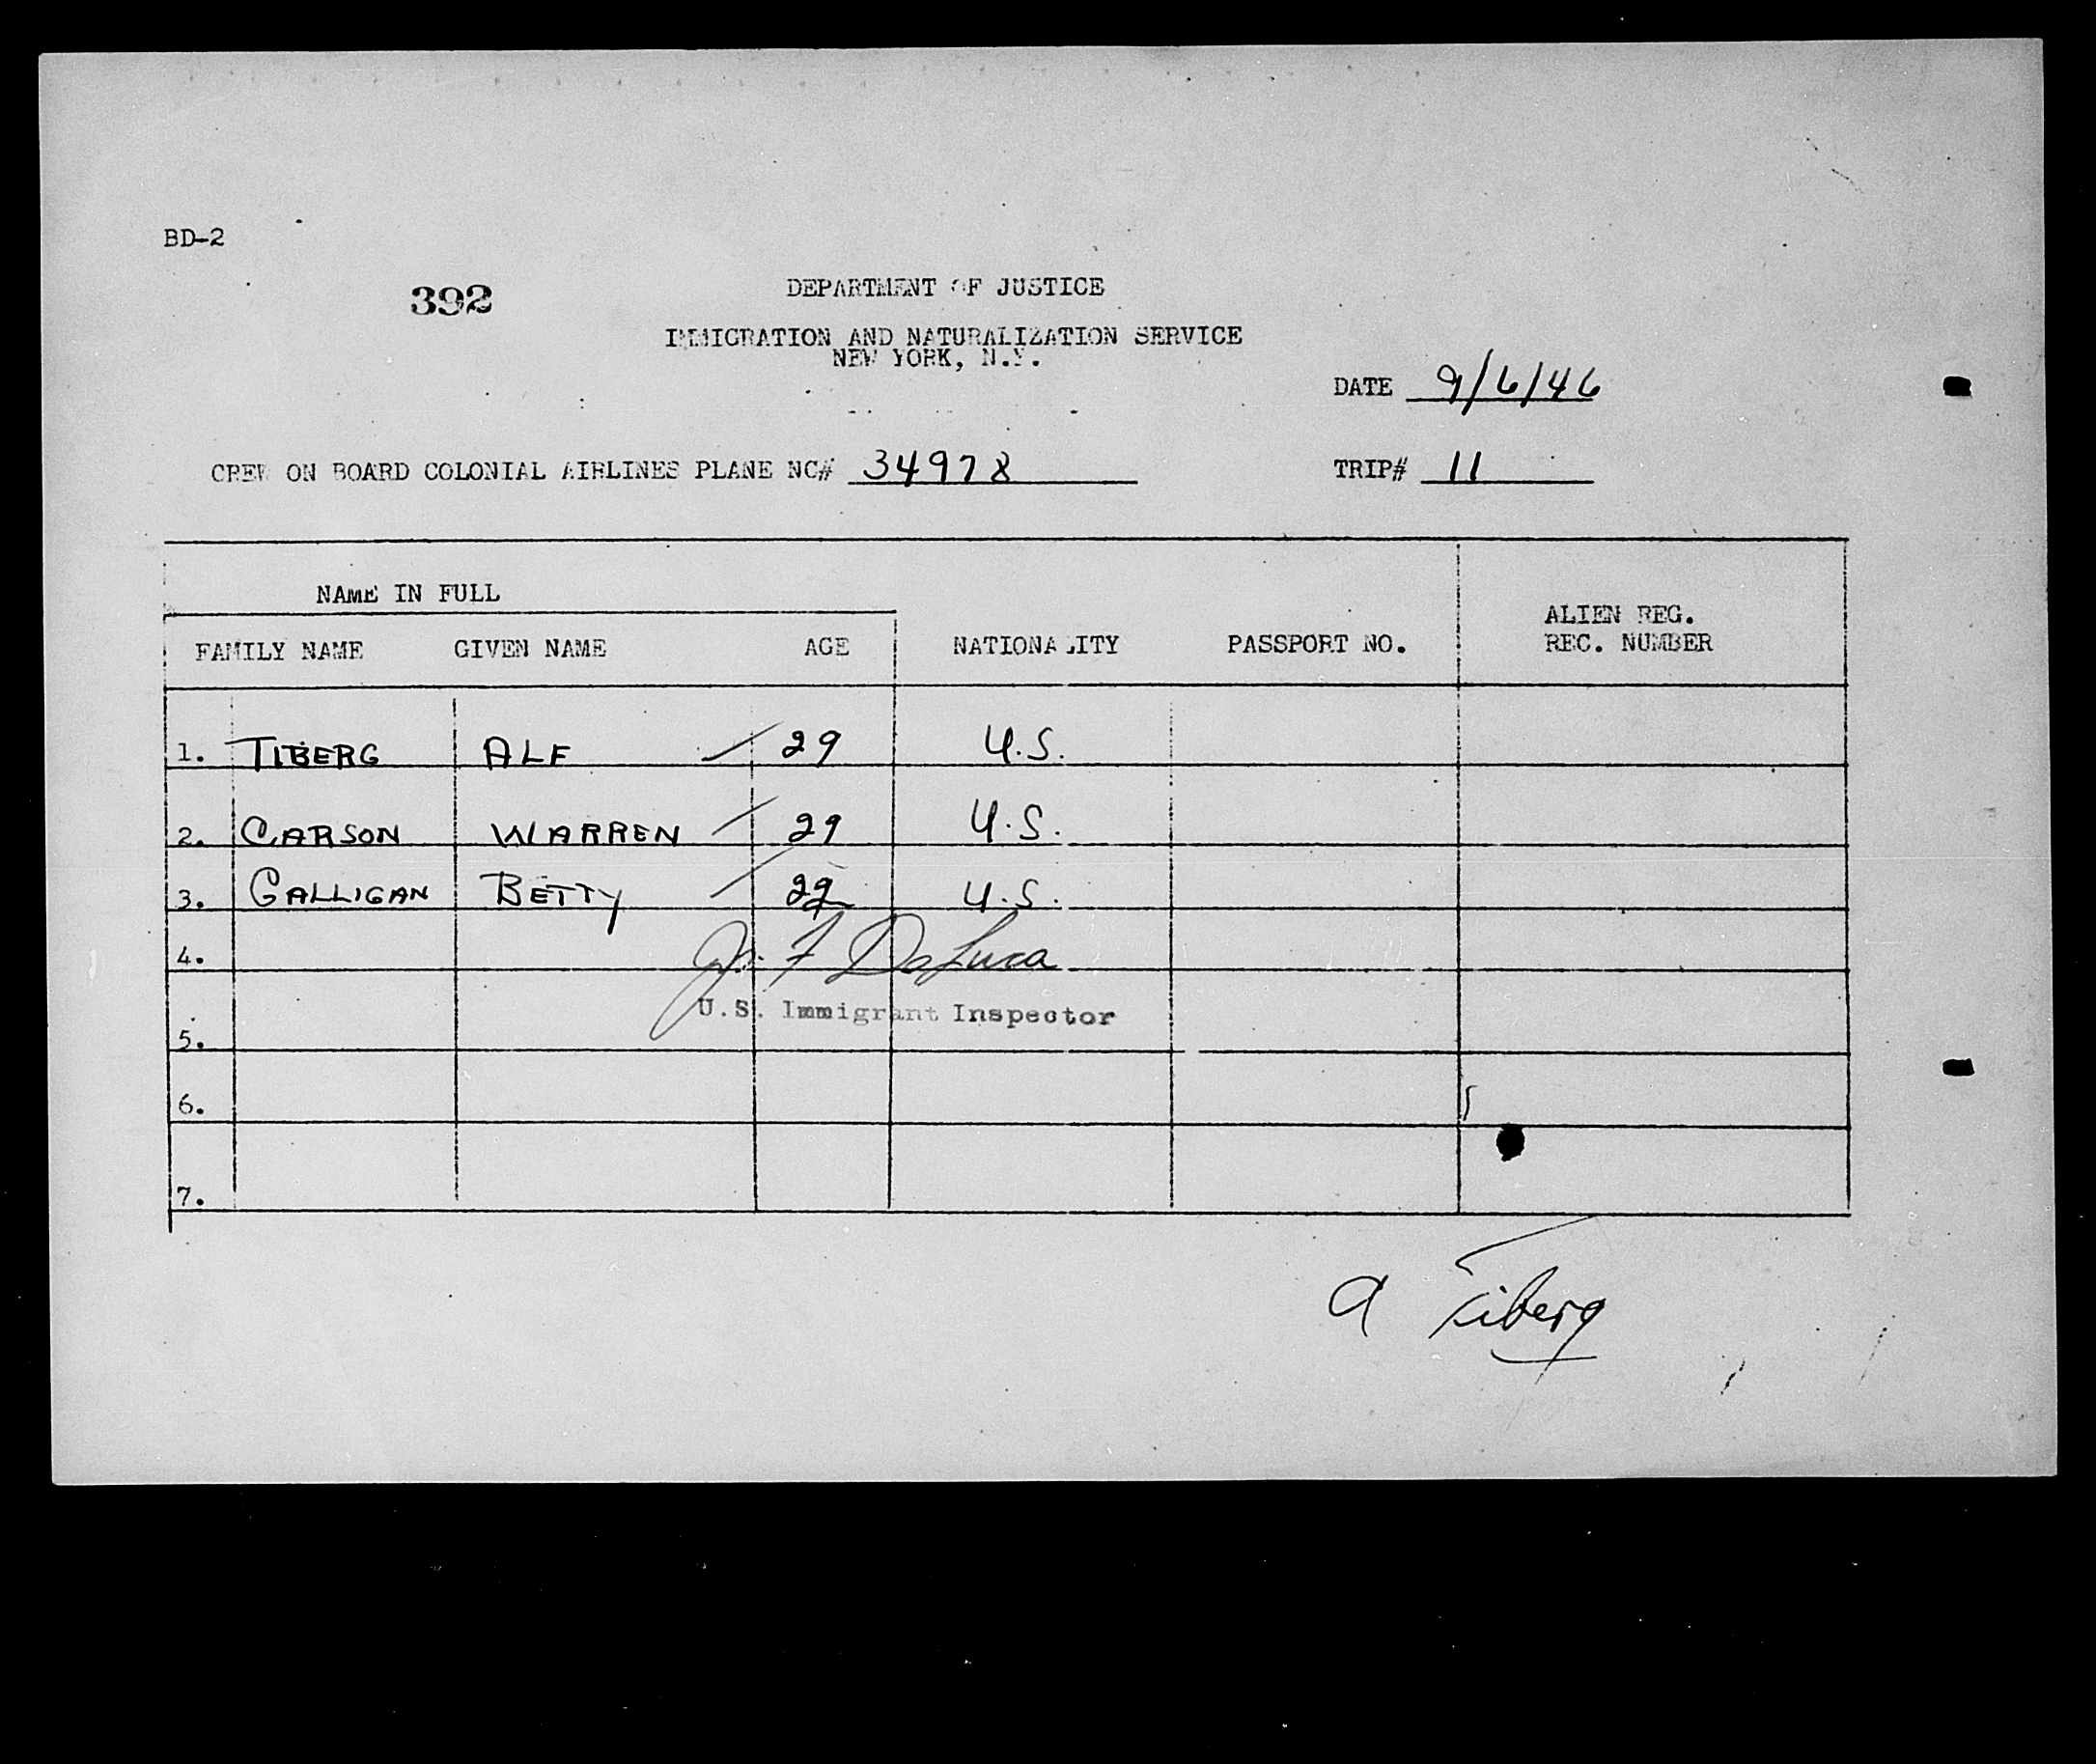 BD-2
392
DEPARTMENT OF JUSTICE
IMMIGRATION AND NATURALIZATION SERVICE
NEW YORK, N.Y.
DATE 9/6/46
CREW ON BOARD COLONIAL AIRLINES PLANE NC# 34978 TRIP# 11
NAME IN FULL
ALIEN REG.
FAMILY NAME GIVEN NAME AGE NATIONALITY PASSPORT NO. REC. NUMBER
1. TIBERG ALF 29 U.S.
2. CARSON WARREN 29 U.S.
3. GALLIGAN BETTY 22 U.S.
4. F DeLuca
U.S. Immigrant Inspector
5.
6.
7.
A Tiberg